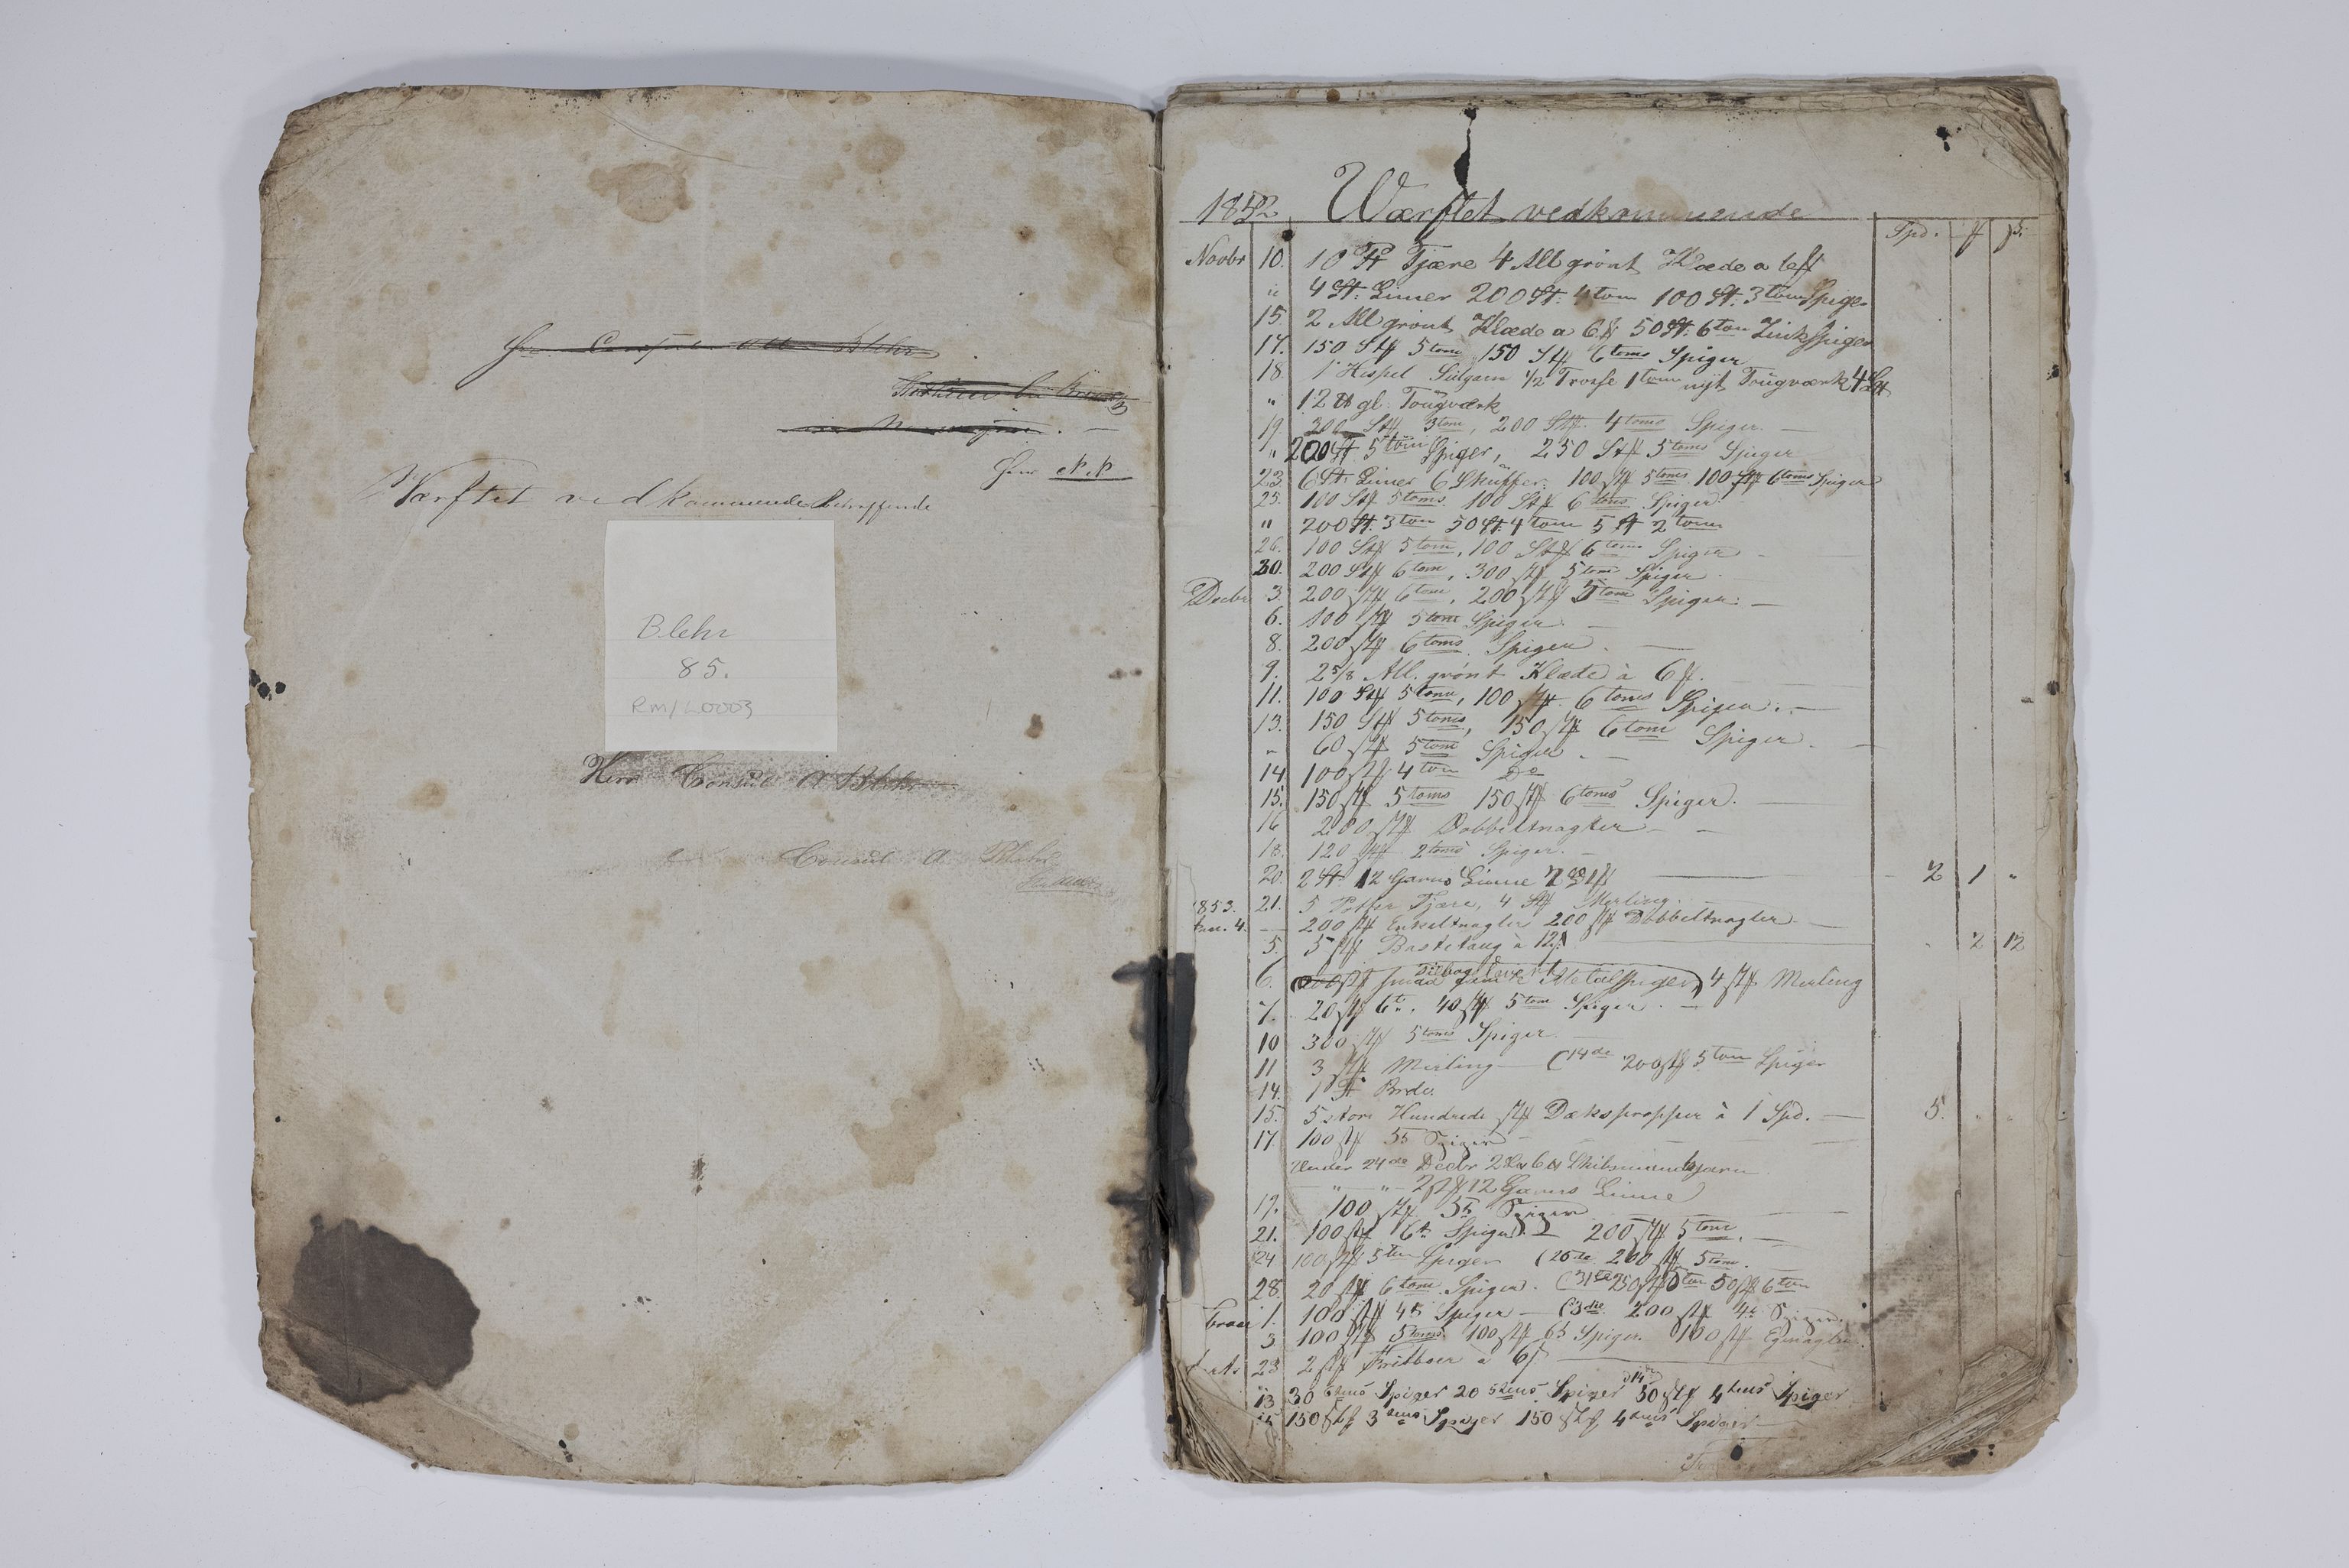 Herr N.N
Værftet vedkommende Betræffende
Blehr
85.
RM/L0003
Herr Consul A Blehr
Consul A Blehr
1852 Værftet vedkommende
Spd. ₰ ß.
Novbr 10. 10 ℔ Tjære 4 All grönt Klæde a 6 ₰
" 4 St: Liner 200 St: 4 tom 100 St: 3 tom Spiger
15. 2 All grönt Klæde a 6 ₰ 50 St: 6 tom Zink Spiger
17. 150 Stk 5 tom 150 Stk 6 toms Spiger
18. 1 Hespel Seilgarn 1/2 Trosse 1 tom nyt Tougværk
" 12 ℔ gl. Tougværk
19. 200 Stk 3 tom, 200 Stk. 4 toms Spiger. —
" 200 St 5 tom Spiger, 250 Stk 5 toms Spiger
23 6 St: Liner 6 Skuffer: 100 Stk 5 toms 100 Stk 6 toms Spiger
25. 100 Stk 5 toms. 100 Stk 6 toms Spiger.
" 200 St. 3 tom 50 St. 4 tom 5 ℔ 2 toms
26. 100 Stk 5 tom, 100 Stk 6 toms Spiger —
30. 200 Stk 6 tom, 300 Stk 5 tom Spiger.
Decbr 3. 200 Stk 6 tom, 200 Stk 5 tom Spiger. —
6. 100 Stk 5 tom Spiger —
8. 200 Stk 6 toms Spiger. —
9. 2 5/8 All. grönt Klæde à 6 ₰.
11. 100 Stk 5 tom, 100 Stk 6 toms Spiger. —
13. 150 Stk 5 toms, 150 Stk 6 tom Spiger. —
" 60 Stk 5 tom Spiger. —
14 100 Stk 4 tom Do
15. 150 Stk 5 toms 150 Stk 6 toms Spiger. —
16 200 Stk Dobbeltnagler — —
18. 120 Stk 2 toms Spiger. —
20. 2 St 12 Garns Liine — 2 1 "
1853. 21. 5 Potter Tjære, 4 Stk Merling. —
Jan. 4. — 200 Stk Enkeltnagler 200 Stk Dobbeltnagler —
5. 5 Stk Bastetaug à 12 ß 2 12
6. tilbagelevert Metalspiger) 4 Stk Merling
7. 20 Stk 6 t. 40 Stk 5 tom Spiger. —
10 300 Stk 5 toms Spiger —
11 3 Stk Merling — (14de 200 Stk 5 tom Spiger
14. 1 St
15. 5 store Hundrede Stk Dækspropper à 1 Spd. — 5. " "
17 100 Stk 5 t. Spiger —
Under 24de Decbr
" — " — 2 Stk 12 Garns Liine
19. 100 Stk 5 t. Spiger
21. 100 Stk 6 t. Spiger. — 200 Stk 5 tom. —
24 100 Stk 5 tom Spiger (26de 200 Stk 5 tom.
28. 20 Stk 6 tom Spiger. (31te 250 Stk 5 tom 50 Stk 6 tom
1. 100 Stk 4 t. Spiger — (3die 200 Stk 4 t. Spiger.
3 100 Stk 5 toms 100 Stk 6 t. Spiger. 100 Stk Egenagler.
23 2 Stk à 6 ß —
13 30 6 toms Spiger 20 5 toms Spiger 14 50 Stk 4 toms Spiger
15 150 Stk 3 toms Spiger 150 Stk 4 toms Spiger